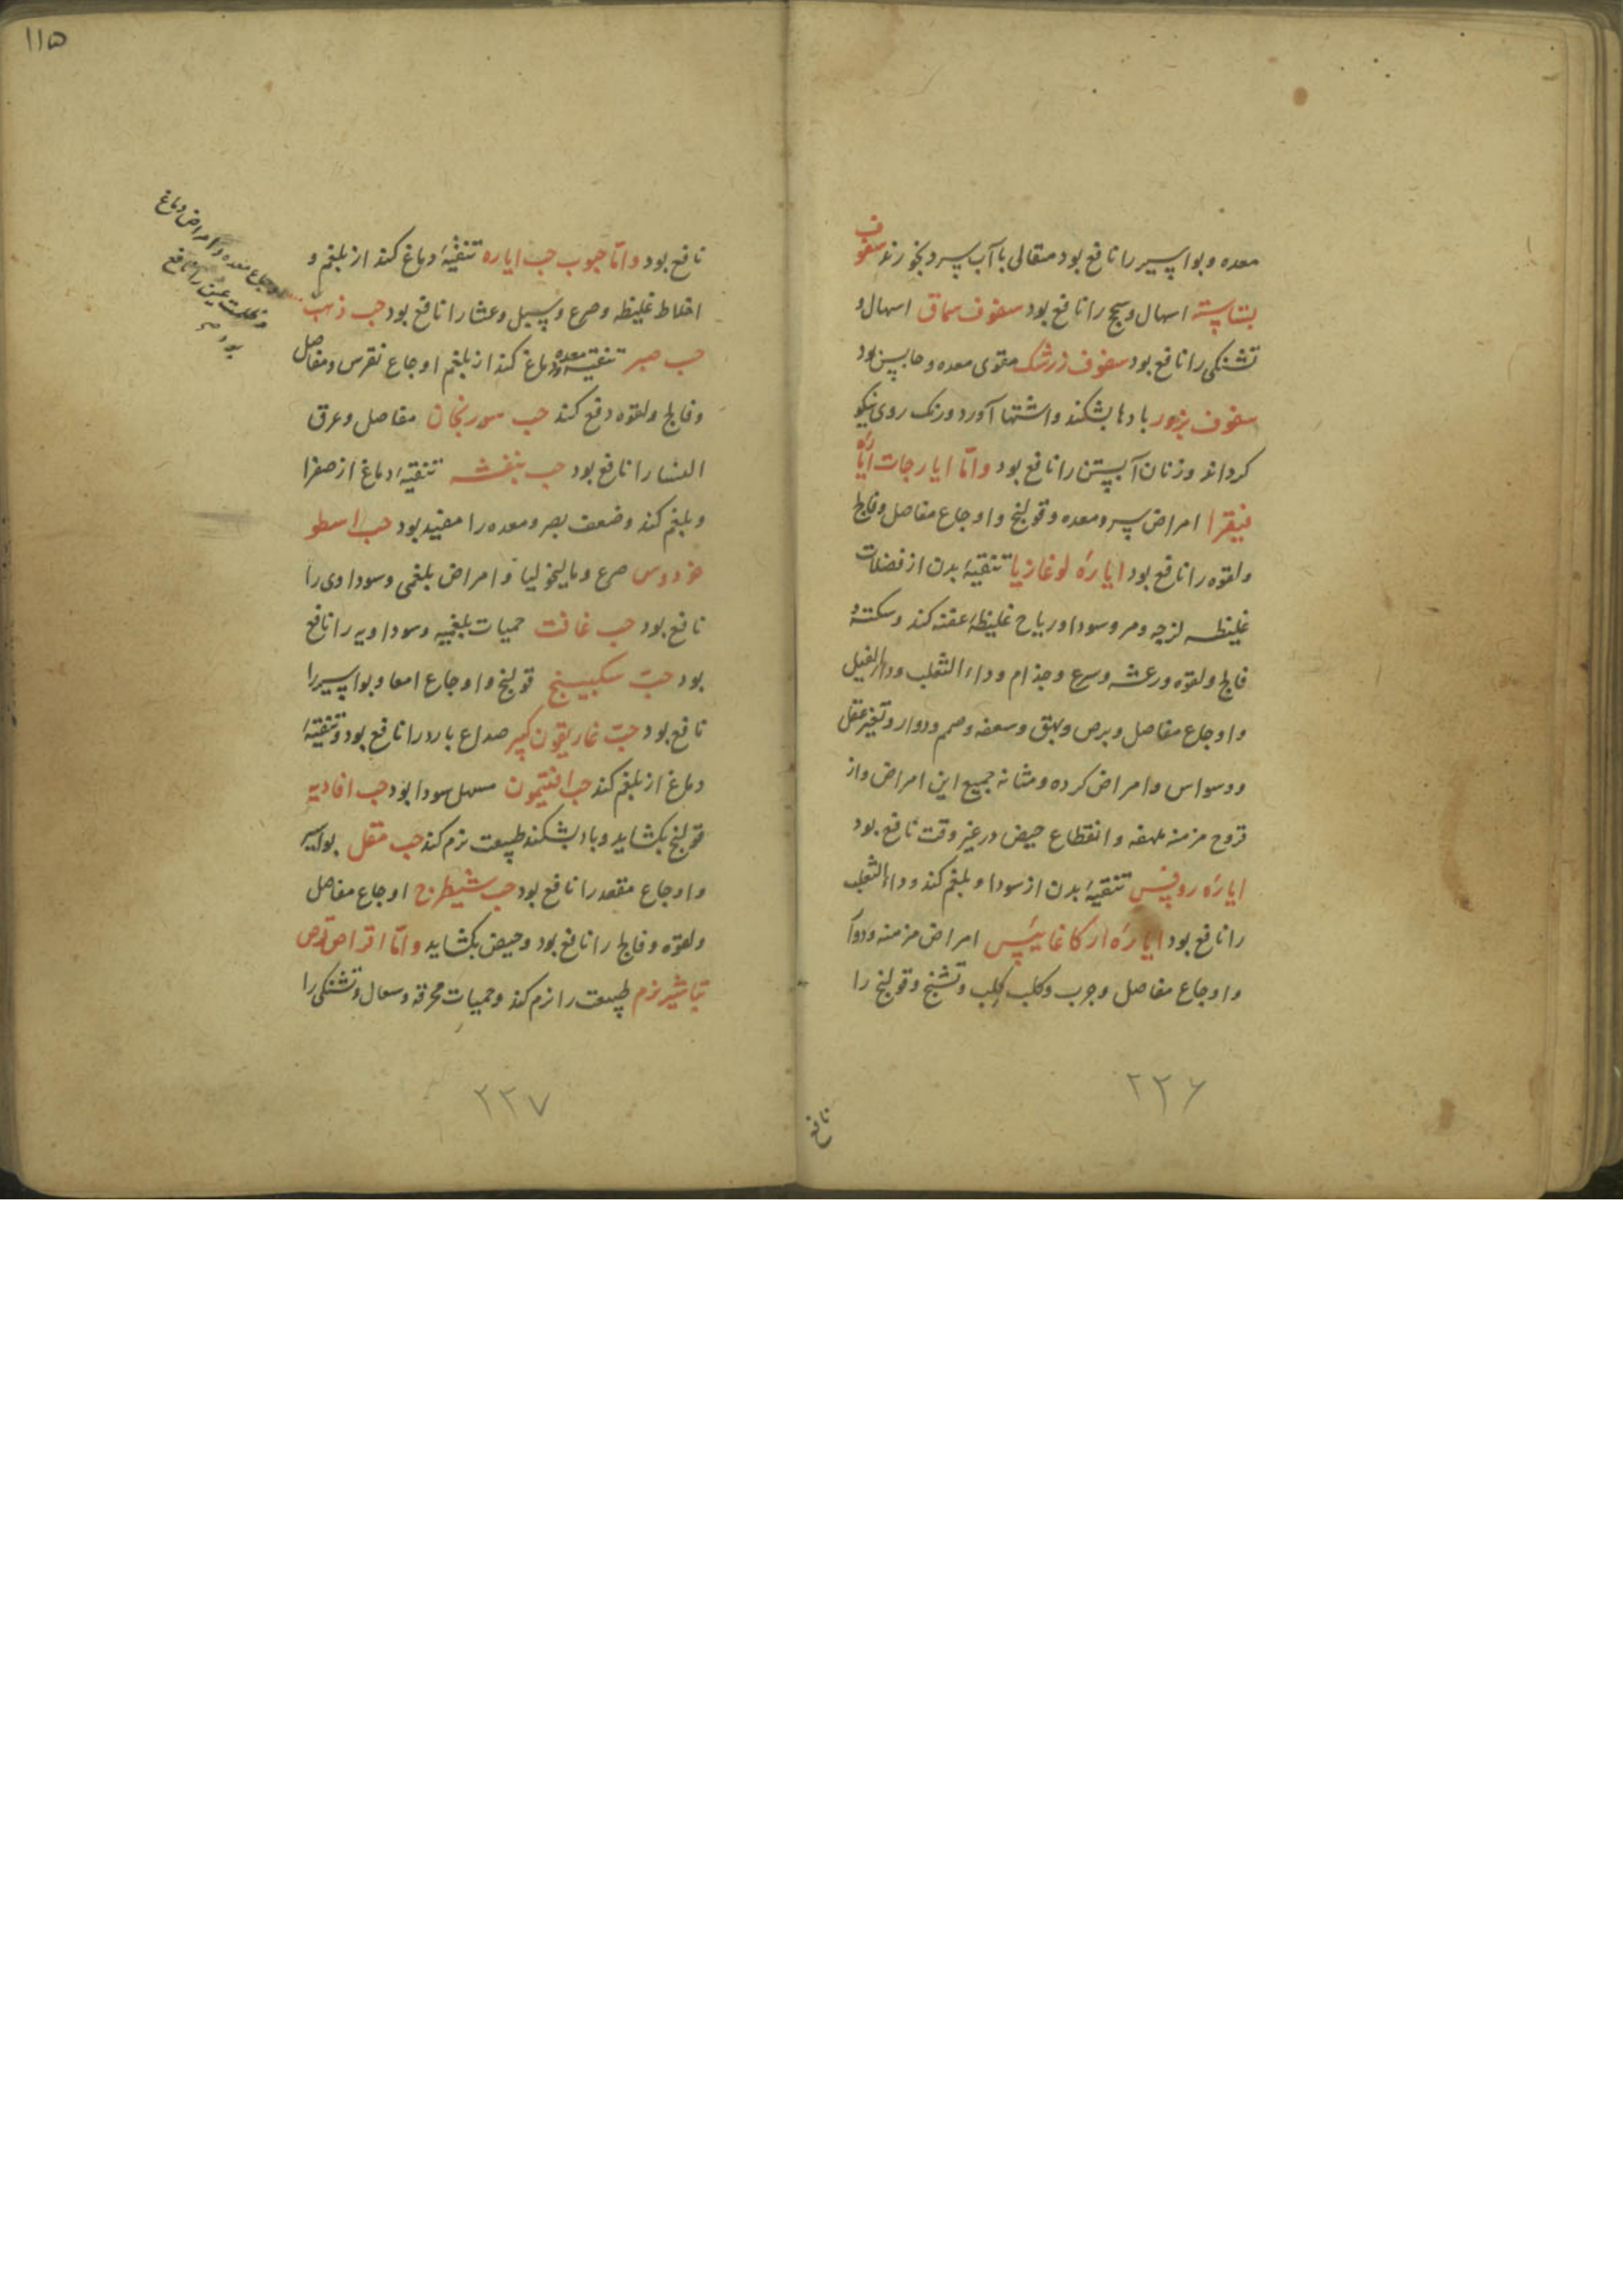 معده و بواسیر را نافع بود مثقالی با آب سرد بخورند سفوف
بشابسته اسهال و سحج را نافع بود سفوف سماق اسهال و
تشنگی را نافع بود سفوف زرشک مقوی معده و حابس بود
سفوف بزور بادها بشکند و اشتها آورد و رنک روی نیکو
کرداند و زنان آبستن را نافع بود و امّا ایارجات ایاره
فیقرا امراض سر و معده و قولنج و اوجاع مفاصل و فالج
و لقوه را نافع بود ایارهٔ لوغازیا تنقیهٔ بدن از فضلات
غلیظه لزجه و مر و سودا و ریاح غلیظهٔ عفنه کند و سکته و
فالج و لقوه و رعشه و سرع و جذام و داء الثعلب و داء الفیل
و اوجاع مفاصل و برص و بهق و سعفه و صمم و دوار و تغیر عقل
و وسواس و امراض کرده و مثانه جمیع این امراض و از
قروح مزمنه و انقطاع حیض در غیر وقت نافع بود
ایارهٔ روفس تنقیهٔ بدن از سودا و بلغم کند و داء الثعلب
را نافع بود ایارهٔ ارکاغانیس امراض مزمنه و دوار
و اوجاع مفاصل و جرب و کلب کلب و تشنج و قولنج را
۲۲۶
نافع
۱۱۵
نافع بود و امّا حبوب حب ایاره تنقیهٔ دماغ کند از بلغم و
اخلاط غلیظه و صرع و سبل و عشا را نافع بود حب ذهب
اوجاع معده و امراض دماغ
و ظلمت عین را نافع
بود صح
حب صبر تنقیه معده و دماغ کند از بلغم اوجاع نقرس و مفاصل
و فالج و لقوه دفع کند حب سورنجان مفاصل و عرق
النسا را نافع بود حب بنفشه تنقیهٔ دماغ از صفرا
و بلغم کند و ضعف بصر و معده را مفید بود حب اسطو
خودوس صرع و مالیخولیا و امراض بلغمی و سوداوی را
نافع بود حب غافت حمیات بلغمیه و سوداویه را نافع
بود حبّ سکبینج قولنج و اوجاع امعا و بواسیر را
نافع بود حبّ غاریقون کبیر صداع بارد را نافع بود و تنقیهٔ
دماغ از بلغم کند حب افتیمون مسهل سودا بود حب افاویه
قولنج بکشاید و باد بشکند طبیعت نرم کند حب مقل بواسیر
و اوجاع مقعد را نافع بود حب شیطرج اوجاع مفاصل
و لقوه و فالج را نافع بود و حیض بکشاید و امّا اقراص قرص
تباشیر نرم طبیعت را نرم کند و حمیات محرقه و سعال و تشنگی را
۲۲۷